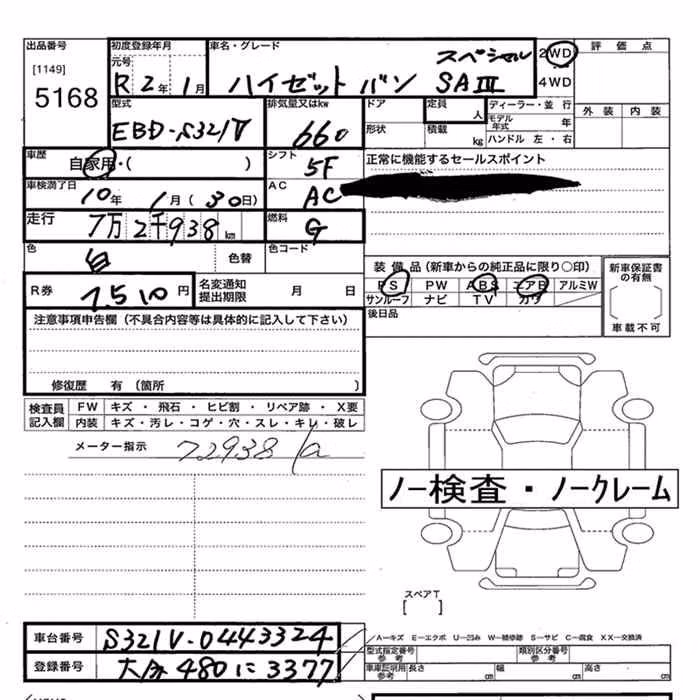 出品番号
[1149]
5168
初度登録年月
元号
R 2年 1月
車名・グレード
スペシャル
ハイゼット バン SAⅢ
2WD
4WD
評価点
外装 内装
型式
EBD-S321V
排気量又はkw
660
ドア
形状
定員
人
積載
kg
ディーラー・並行
モデル年式 年
ハンドル 左・右
車歴
自家用・( )
シフト
5F
正常に機能するセールスポイント
車検満了日
10年 1月 (30日)
AC
AC
走行
7万2千938km
燃料
G
色
白
色替
色コード
装備品(新車からの純正品に限り○印)
PS PW ABS エアB アルミW
サンルーフ ナビ TV カワ
後日品
新車保証書の有無
車載不可
R券
7,510円
名変通知提出期限 月 日
注意事項申告欄(不具合内容等は具体的に記入して下さい)
修復歴 有〔箇所 〕
検査員記入欄
FW キズ・飛石・ヒビ割・リペア跡・X要
内装 キズ・汚レ・コゲ・穴・スレ・キレ・破レ
メーター指示
72938
ノー検査・ノークレーム
スペアT
[ ]
車台番号
S321V-0443324
登録番号
大分 480 に 3377
A−キズ E−エクボ U−凹み W−補修跡 S−サビ C−腐食 XX−交換済
型式指定番号
参考
類別区分番号
参考
車庫証明用
参考
長さ cm 幅 cm 高さ cm